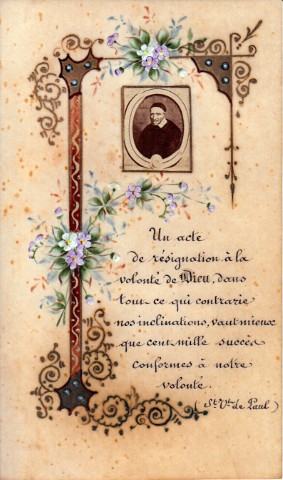 Un acte
de résignation à la
volonté de Dieu, dans
tout ce qui contrarie
nos inclinations, vaut mieux
que cent mille succès
conformes à notre
volonté.
(St Vt de Paul)